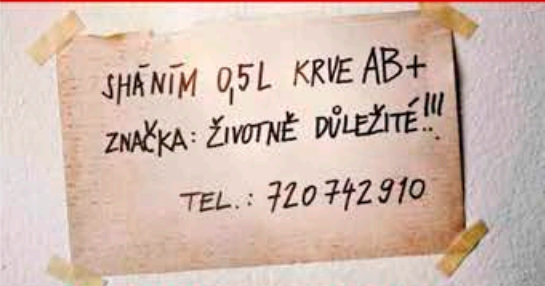 SHÁNÍM 0,5L KRVE AB+
ZNAČKA: ŽIVOTNĚ DŮLEŽITÉ!!!
TEL.: 720 742 910